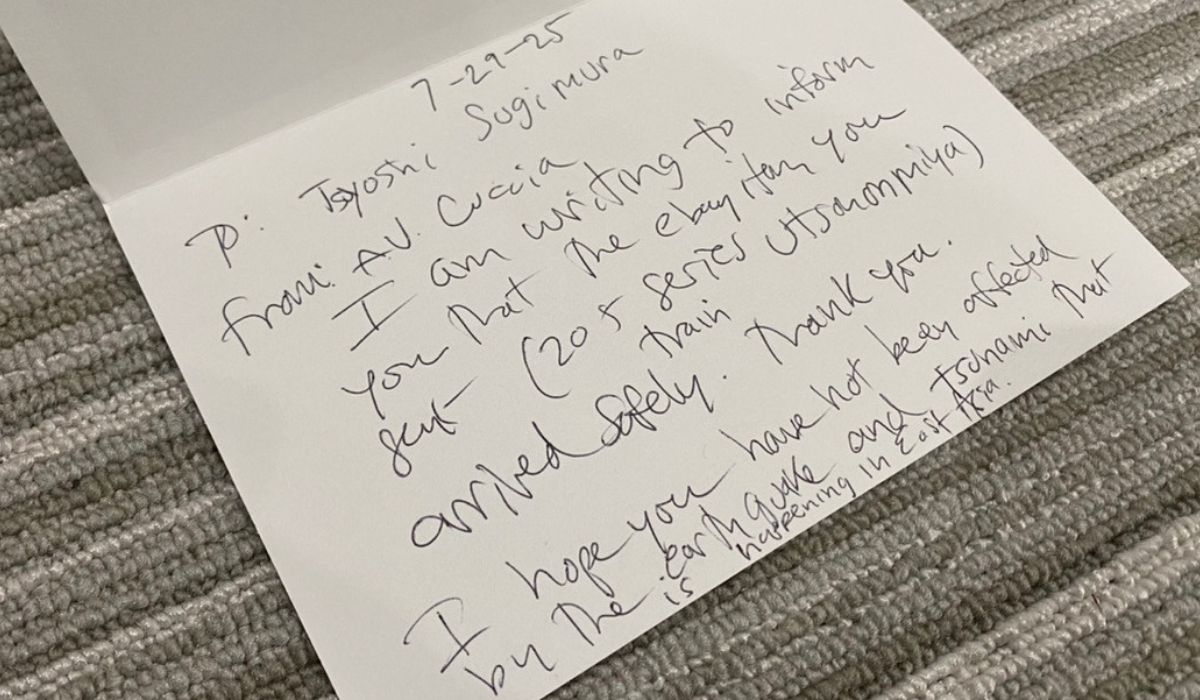 7-29-25
To: Tsyoshi Sugimura
From: A.V. Cuccia
I am writing to inform
you that the ebay item you
sent (205 series Utsunomiya)
train
arrived safely. Thank you.
I hope you have not been affected
by the earthquake and tsunami that
is happening in East Asia.